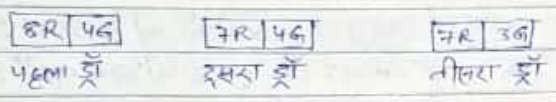 8R 4G 7R 4G 7R 3G
पहला ड्रॉ दूसरा ड्रॉ तीसरा ड्रॉ